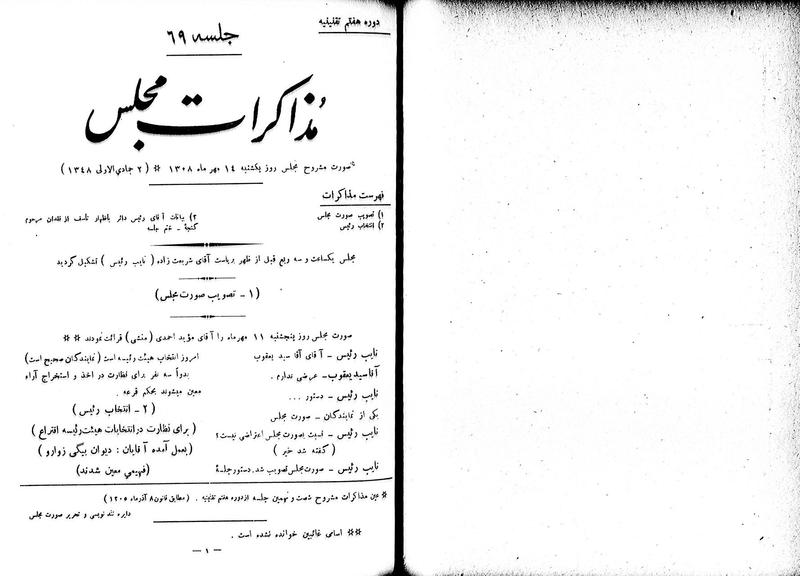 دوره هفتم تقنینیه
جلسه ۶۹
مذاکرات مجلس
صورت مشروح مجلس روز یکشنبه ۱۴ مهر ماه ۱۳۰۸ * (۲ جمادی الاولی ۱۳۴۸)
فهرست مذاکرات
۱) تصویب صورت مجلس
۲) انتخاب رئیس
۳) بیانات آقای رئیس دائر باظهار تأسف از فقدان مرحوم
گنجهٔ - ختم جلسه
مجلس یکساعت و سه ربع قبل از ظهر بریاست آقای شریعت زاده (نایب رئیس) تشکیل گردید
(۱ - تصویب صورت مجلس)
صورت مجلس روز پنجشنبه ۱۱ مهرماه را آقای مؤید احمدی (منشی) قرائت نمودند **
نایب رئیس - آقای آقا سید یعقوب
آقا سید یعقوب - عرضی ندارم.
نایب رئیس - دستور ...
یکی از نمایندگان - صورت مجلس
نایب رئیس - نسبت بصورت مجلس اعتراضی نیست؟
(گفته شد خیر)
نایب رئیس - صورت مجلس تصویب شد. دستور جلسهٔ
امروز انتخاب هیئت رئیسه است (نمایندگان صحیح است)
بدواً سه نفر برای نظارت در اخذ و استخراج آراء
معین میشوند بحکم قرعه.
(۲ - انتخاب رئیس)
(برای نظارت در انتخابات هیئت رئیسه اقتراع)
(بعمل آمده آقایان: دیوان بیگی زوارو)
(فهیمی معین شدند)
* عین مذاکرات مشروح شصت و نهمین جلسه از دوره هفتم تقنینیه. (مطابق قانون ۸ آذرماه ۱۳۰۵)
دایره تند نویسی و تحریر صورت مجلس
** اسامی غائبین خوانده نشده است.
— ۱ —